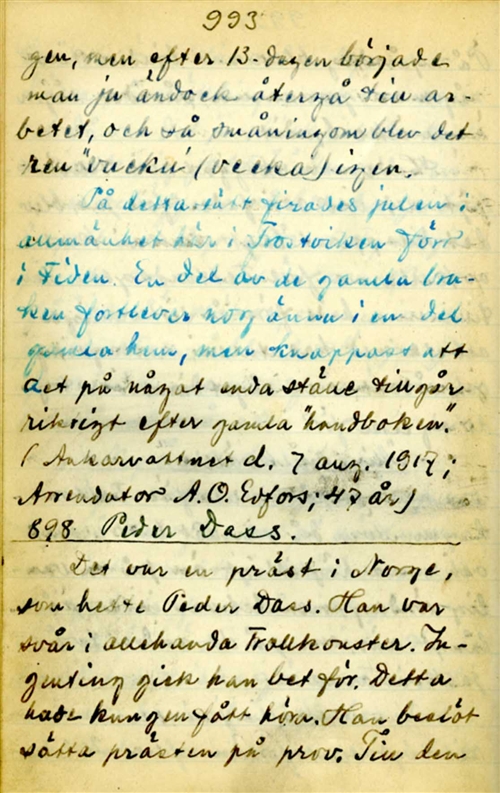 993
gen, men efter 13-dagen började
man ju ändock återgå till ar-
betet, och så småningom blev det
ren "vucku" (vecka) igen.
På detta sätt firades julen i
allmänhet här i Frostviken förr
i tiden. En del av de gamla bru-
ken fortlever nog ännu i en del
gamla hem, men knappast att
det på något enda ställe tillgår
riktigt efter gamla "handboken."
(Ankarvattnet d. 7 aug. 1917;
Arrendator A.O. Edfors; 47 år)
898 Peder Dass.
Det var en präst i Norge,
som hette Peder Dass. Han var
svår i allehanda trollkonster. In-
genting gick han bet för. Detta
hade kungen fått höra. Han beslöt
sätta prästen på prov. Till den